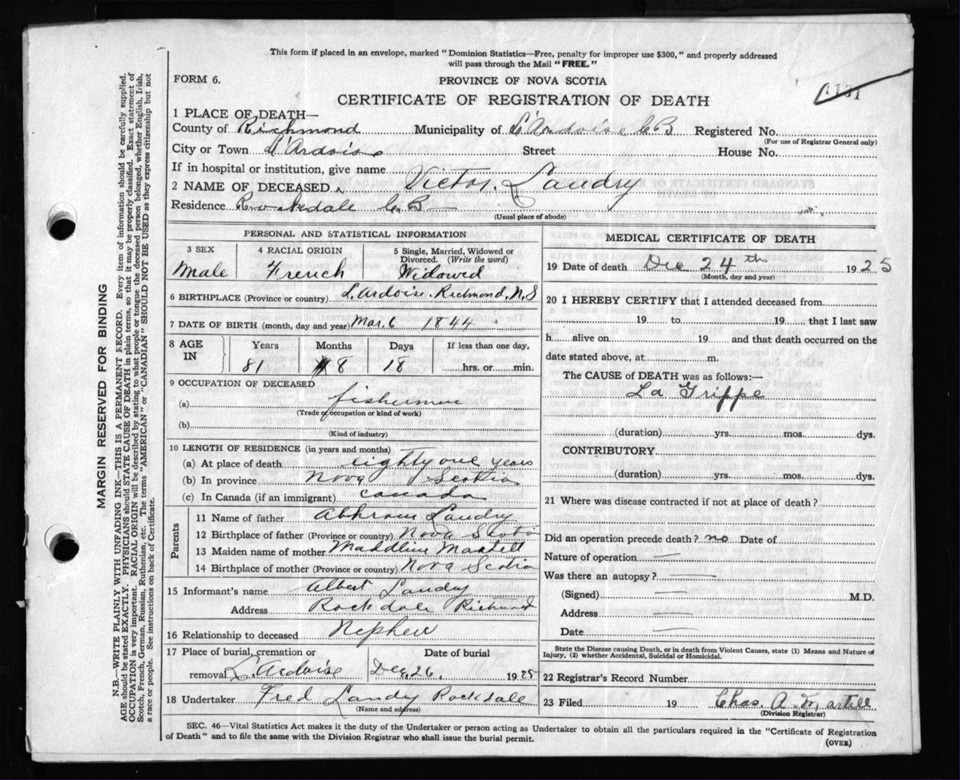 This form if placed in an envelope, marked "Dominion Statistics—Free, penalty for improper use $300," and properly addressed
will pass through the Mail "FREE."
FORM 6.
PROVINCE OF NOVA SCOTIA
CERTIFICATE OF REGISTRATION OF DEATH
1 PLACE OF DEATH—
County of Richmond Municipality of L'Ardoise C B Registered No.
(For use of Registrar General only)
City or Town L'Ardoise Street House No.
If in hospital or institution, give name
2 NAME OF DECEASED Victor Landry
Residence Rockdale C B
(Usual place of abode)
PERSONAL AND STATISTICAL INFORMATION
3 SEX 4 RACIAL ORIGIN 5 Single, Married, Widowed or Divorced. (Write the word)
Male French Widowed
6 BIRTHPLACE (Province or country) L'Ardoise Richmond, N S
7 DATE OF BIRTH (month, day and year) Mar 6 1844
8 AGE IN Years Months Days If less than one day,
81 8 18 hrs. or min.
9 OCCUPATION OF DECEASED
(a) fisherman
(Trade or occupation or kind of work)
(b)
(Kind of industry)
10 LENGTH OF RESIDENCE (in years and months)
(a) At place of death eighty one years
(b) In province Nova Scotia
(c) In Canada (if an immigrant) Canada
Parents
11 Name of father Landry
12 Birthplace of father (Province or country) Nova Scotia
13 Maiden name of mother Maddline Martell
14 Birthplace of mother (Province or country) Nova Scotia
15 Informant's name Albert Landry
Address Rockdale Richmond
16 Relationship to deceased Nephew
17 Place of burial, cremation or Date of burial
removal L'Ardoise Dec 26, 1925
18 Undertaker Fred Landry Rockdale
(Name and address)
MEDICAL CERTIFICATE OF DEATH
19 Date of death Dec 24th 1925
(Month, day and year)
20 I HEREBY CERTIFY that I attended deceased from
19 to 19 that I last saw
h alive on 19 and that death occurred on the
date stated above, at m.
The CAUSE of DEATH was as follows:—
La Grippe
(duration) yrs. mos. dys.
CONTRIBUTORY
(duration) yrs. mos. dys.
21 Where was disease contracted if not at place of death?
Did an operation precede death? no Date of
Nature of operation —
Was there an autopsy? —
(Signed) — M.D.
Address —
Date —
State the Disease causing Death, or in death from Violent Causes, state (1) Means and Nature of
Injury, (2) whether Accidental, Suicidal or Homicidal.
22 Registrar's Record Number
23 Filed 19 Chas. A. Martell
(Division Registrar)
SEC. 46—Vital Statistics Act makes it the duty of the Undertaker or person acting as Undertaker to obtain all the particulars required in the "Certificate of Registration
of Death" and to file the same with the Division Registrar who shall issue the burial permit.
(OVER)
MARGIN RESERVED FOR BINDING
N.B.—WRITE PLAINLY WITH UNFADING INK—THIS IS A PERMANENT RECORD. Every item of information should be carefully supplied.
AGE should be stated EXACTLY. PHYSICIANS should STATE CAUSE OF DEATH in plain terms, so that it may be properly classified. Exact statement of
OCCUPATION is very important. RACIAL ORIGIN will be described by stating to what people or tongue the deceased person belonged, whether English, Irish,
Scotch, French, German, Russian, Ruthenian, etc. The terms "AMERICAN" or "CANADIAN" SHOULD NOT BE USED as they express citizenship but not
a race or people. See instructions on back of Certificate.